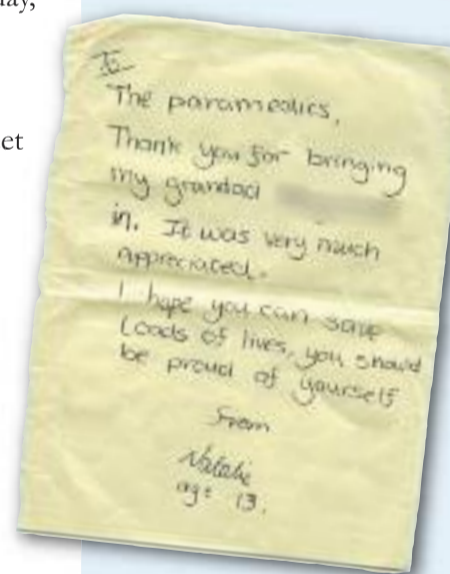 ay,
et
To
The paramedics,
Thank you for bringing
my grandad
in. It was very much
appreciated.
I hope you can save
Loads of lives, you should
be proud of yourself
From
Natalie
age 13.